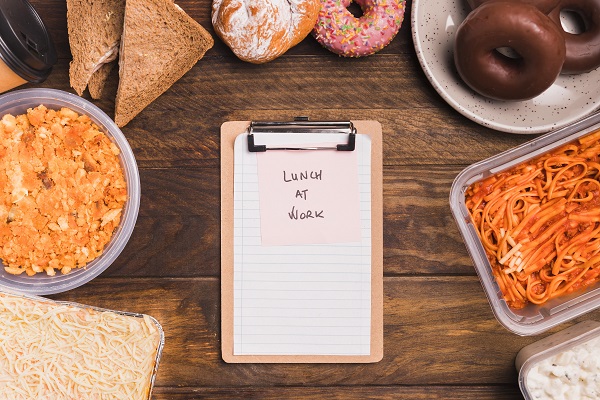 LUNCH
AT
WORK